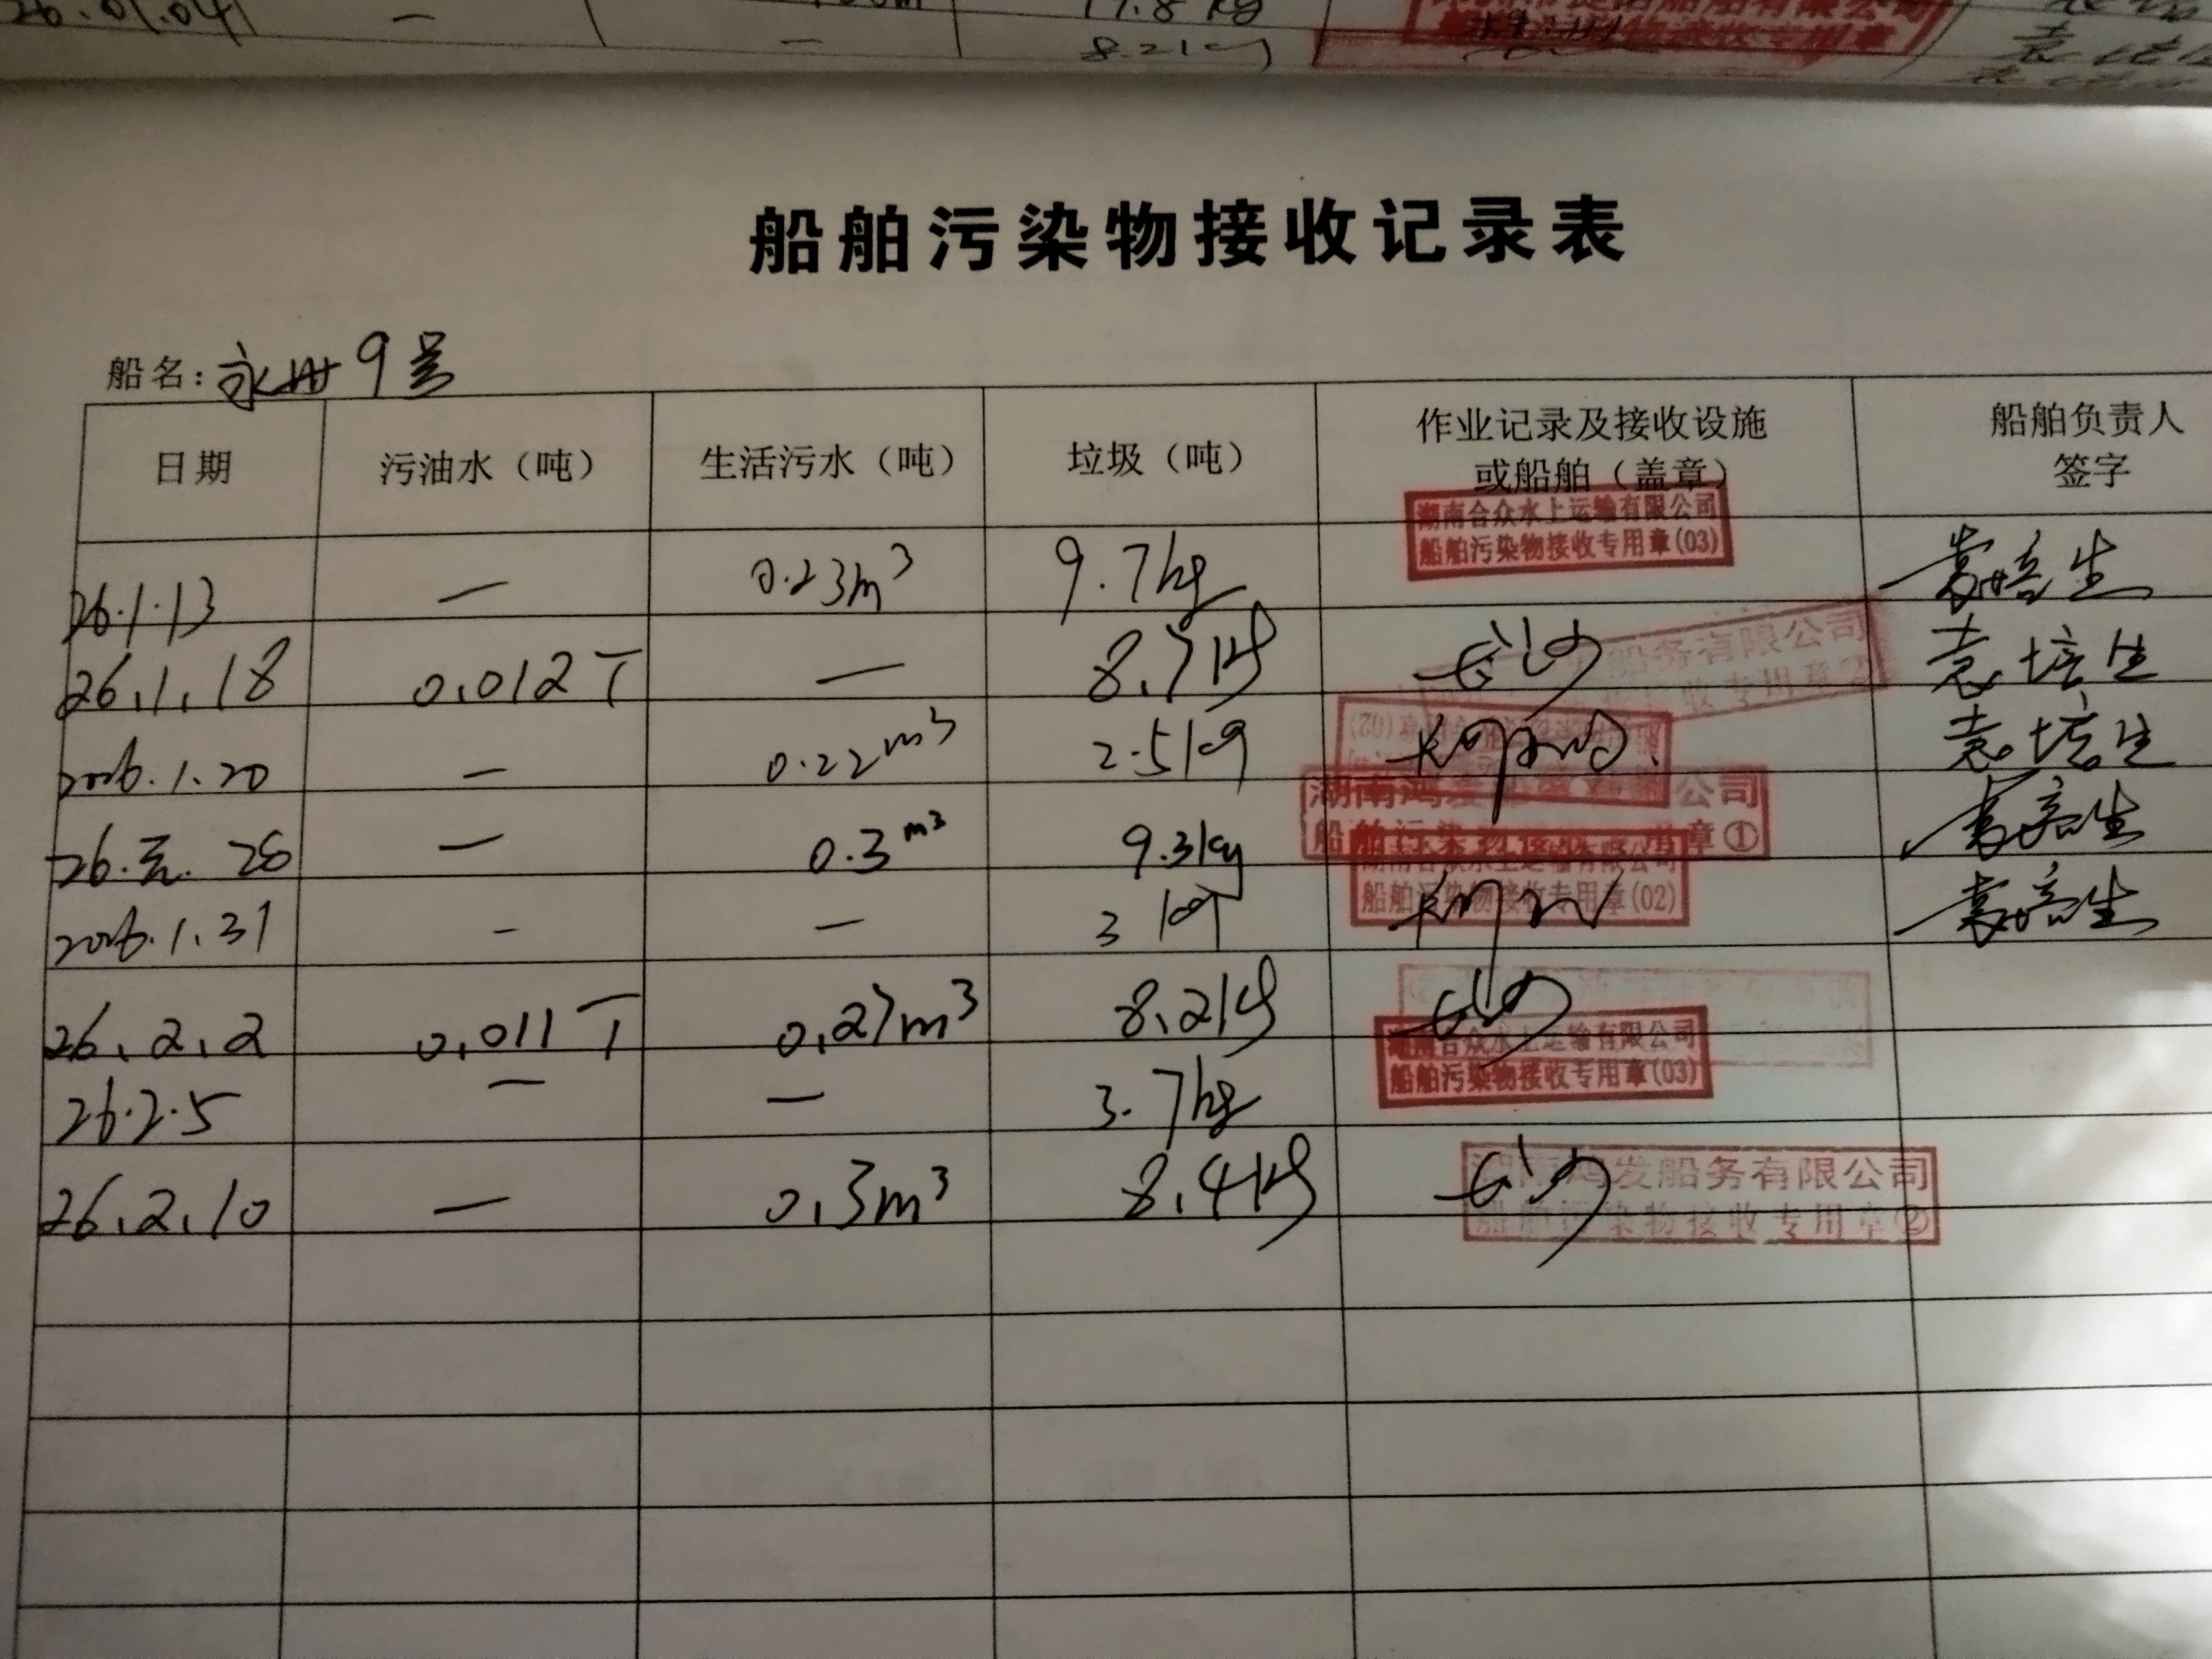 26.01.04 —
17.8 kg
— 8.21kg
船舶污染物接收记录表
船名：永州9号
日期 污油水（吨） 生活污水（吨） 垃圾（吨） 作业记录及接收设施或船舶（盖章） 船舶负责人签字
湖南合众水上运输有限公司
船舶污染物接收专用章(03)
26.1.13 — 0.23m³ 9.7kg 袁培生
26.1.18 0.012T — 8.7kg 长沙 袁培生
船务有限公司
收专用章②
2026.1.20 — 0.22m³ 2.5kg 袁培生
湖南鸿发 公司
船舶污染物接收 章①
26.元.28 — 0.3m³ 9.3kg 袁培生
船舶污染物接收专用章(02)
2026.1.31 - — 3kg 袁培生
26.2.2 0.011T 0.27m³ 8.2kg 长沙
湖南合众水上运输有限公司
船舶污染物接收专用章(03)
26.2.5 — — 3.7kg
26.2.10 — 0.3m³ 8.4kg 长沙
湖南鸿发船务有限公司
船舶污染物接收专用章②